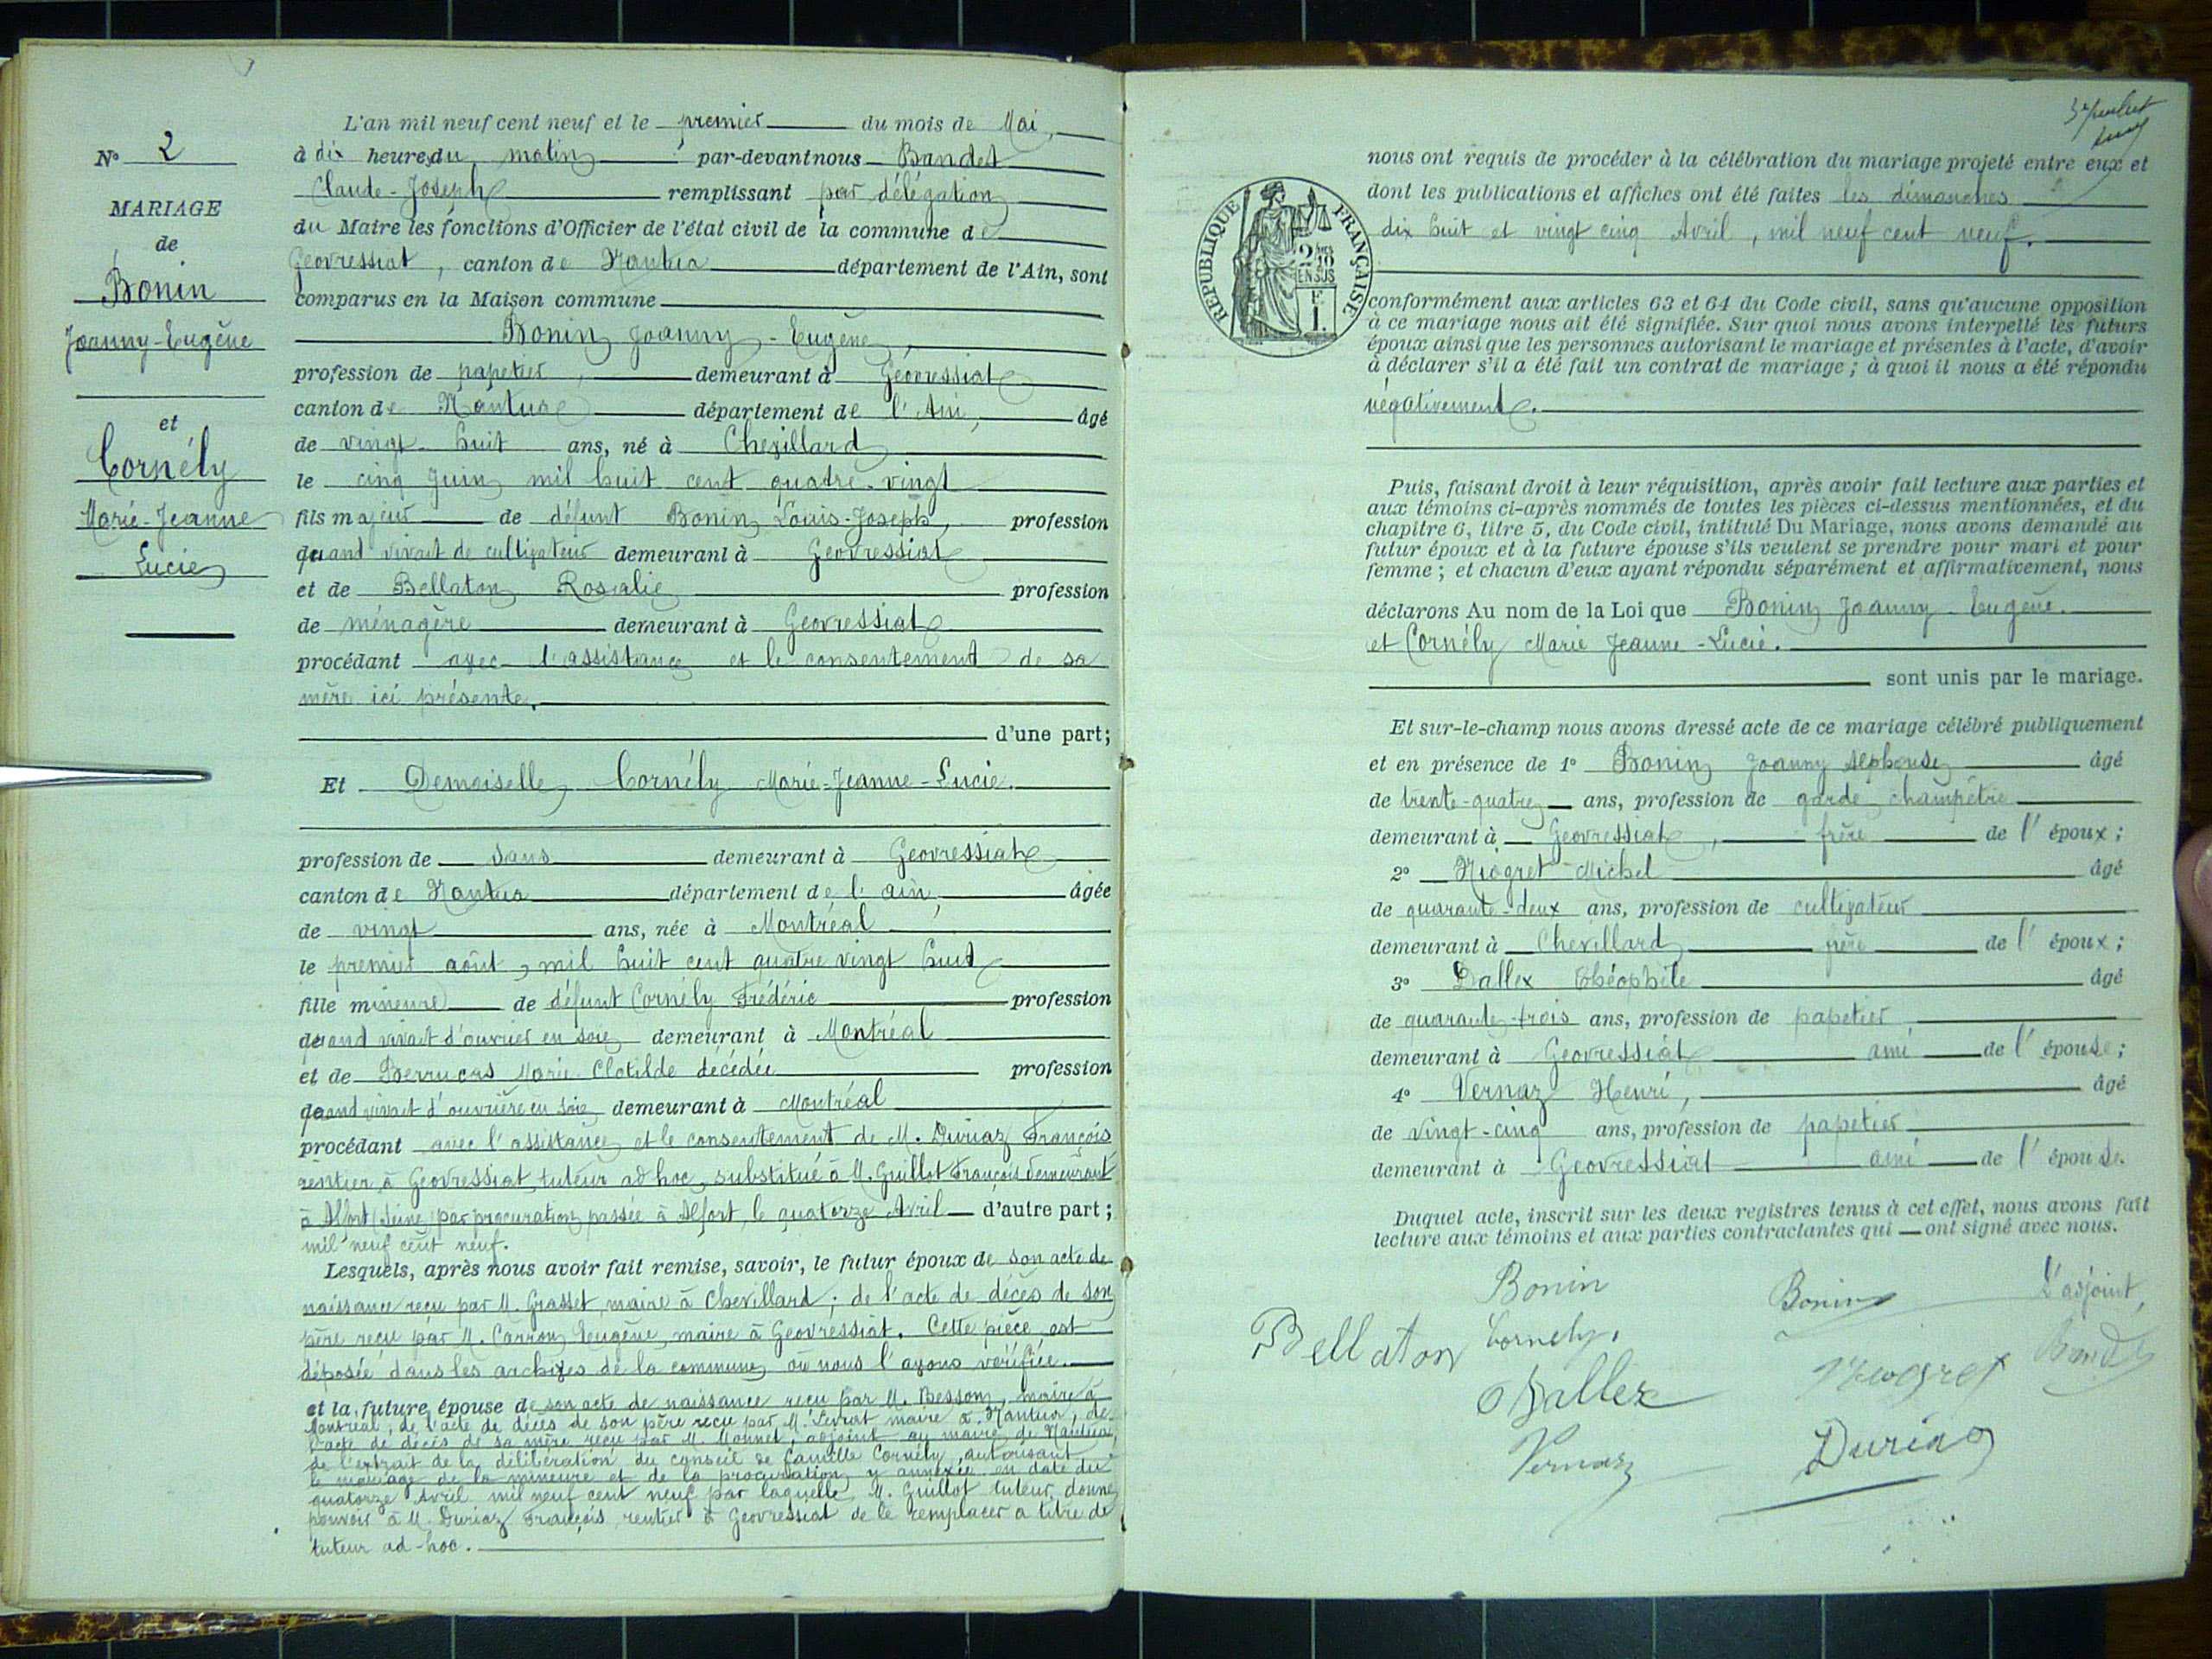 N° 2
MARIAGE
de
Bonin
Joanny-Eugène
et
Cornély
Marie-Jeanne
Lucie
L'an mil neuf cent neuf et le premier du mois de Mai,
à dix heures du matin par-devant nous Bandet
Claude-Joseph remplissant par délégation
du Maire les fonctions d'Officier de l'état civil de la commune de
Geovressiat, canton de Nantua département de l'Ain, sont
comparus en la Maison commune
Bonin Joanny-Eugène,
profession de papetier, demeurant à Géovressiat
canton de Nantua département de l'Ain, âgé
de vingt-huit ans, né à Chevillard
le cinq Juin mil huit cent quatre-vingt
fils majeur de défunt Bonin Louis-Joseph, profession
quand vivait de cultivateur demeurant à Geovressiat
et de Bellaton Rosalie profession
de ménagère demeurant à Geovressiat
procédant avec l'assistance et le consentement de sa
mère ici présente.
d'une part;
Et Demoiselle Cornély Marie-Jeanne-Lucie.
profession de sans demeurant à Geovressiat
canton de Nantua département de l'ain, âgée
de vingt ans, née à Montréal
le premier août, mil huit cent quatre vingt huit
fille mineure de défunt Cornély Frédéric profession
quand vivait d'ouvrier en soie demeurant à Montréal
et de Marie Clotilde décédée profession
quand vivait d'ouvrière en soie demeurant à Montréal
procédant avec l'assistance et le consentement de M. Duriaz François
rentier à Geovressiat tuteur ad hoc, substitué à M. Guillot François demeurant
à Alfort (Seine) par procuration passée à Alfort, le quatorze Avril d'autre part;
mil neuf cent neuf.
Lesquels, après nous avoir fait remise, savoir, le futur époux de son acte de
naissance reçu par M. Grasset, maire à Chevillard; de l'acte de décès de son
père reçu par M. Carron Eugène, maire à Geovressiat. Cette pièce est
déposée dans les archives de la commune où nous l'avons vérifiée.
et la future épouse de son acte de naissance reçu par M. Besson, maire à
Montréal; de l'acte de décès de son père reçu par M. Levrat maire à Nantua, de
l'acte de décès de sa mère reçu par M. Monnet, adjoint au maire de Nantua,
de l'extrait de la délibération du conseil de famille Cornély, autorisant
le mariage de la mineure et de la procuration y annexée en date du
quatorze Avril mil neuf cent neuf par laquelle M. Guillot tuteur donne
pouvoir à M. Duriaz François, rentier à Geovressiat de le remplacer à titre de
tuteur ad-hoc.
RÉPUBLIQUE FRANÇAISE
2/10
EN SUS
F
1.
nous ont requis de procéder à la célébration du mariage projeté entre eux et
dont les publications et affiches ont été faites les dimanches
dix huit et vingt cinq Avril, mil neuf cent neuf.
conformément aux articles 63 et 64 du Code civil, sans qu'aucune opposition
à ce mariage nous ait été signifiée. Sur quoi nous avons interpellé les futurs
époux ainsi que les personnes autorisant le mariage et présentes à l'acte, d'avoir
à déclarer s'il a été fait un contrat de mariage; à quoi il nous a été répondu
négativement.
Puis, faisant droit à leur réquisition, après avoir fait lecture aux parties et
aux témoins ci-après nommés de toutes les pièces ci-dessus mentionnées, et du
chapitre 6, titre 5, du Code civil, intitulé Du Mariage, nous avons demandé au
futur époux et à la future épouse s'ils veulent se prendre pour mari et pour
femme; et chacun d'eux ayant répondu séparément et affirmativement, nous
déclarons Au nom de la Loi que Bonin Joanny-Eugène.
et Cornély Marie Jeanne-Lucie.
sont unis par le mariage.
Et sur-le-champ nous avons dressé acte de ce mariage célébré publiquement
et en présence de 1° Bonin Joanny Alphonse âgé
de trente-quatre ans, profession de garde champêtre
demeurant à Geovressiat, frère de l'époux;
2° Niogret Michel âgé
de quarante-deux ans, profession de cultivateur
demeurant à Chevillard frère de l'époux;
3° Dallex Théophile âgé
de quarante-trois ans, profession de papetier
demeurant à Geovressiat ami de l'épouse;
4° Vernaz Henri, âgé
de vingt-cinq ans, profession de papetier
demeurant à Geovressiat ami de l'épouse.
Duquel acte, inscrit sur les deux registres tenus à cet effet, nous avons fait
lecture aux témoins et aux parties contractantes qui ont signé avec nous.
Bonin Bonin L'adjoint,
Bellaton Cornely. Niogret Bandet
Dallex
Vernaz Duriaz